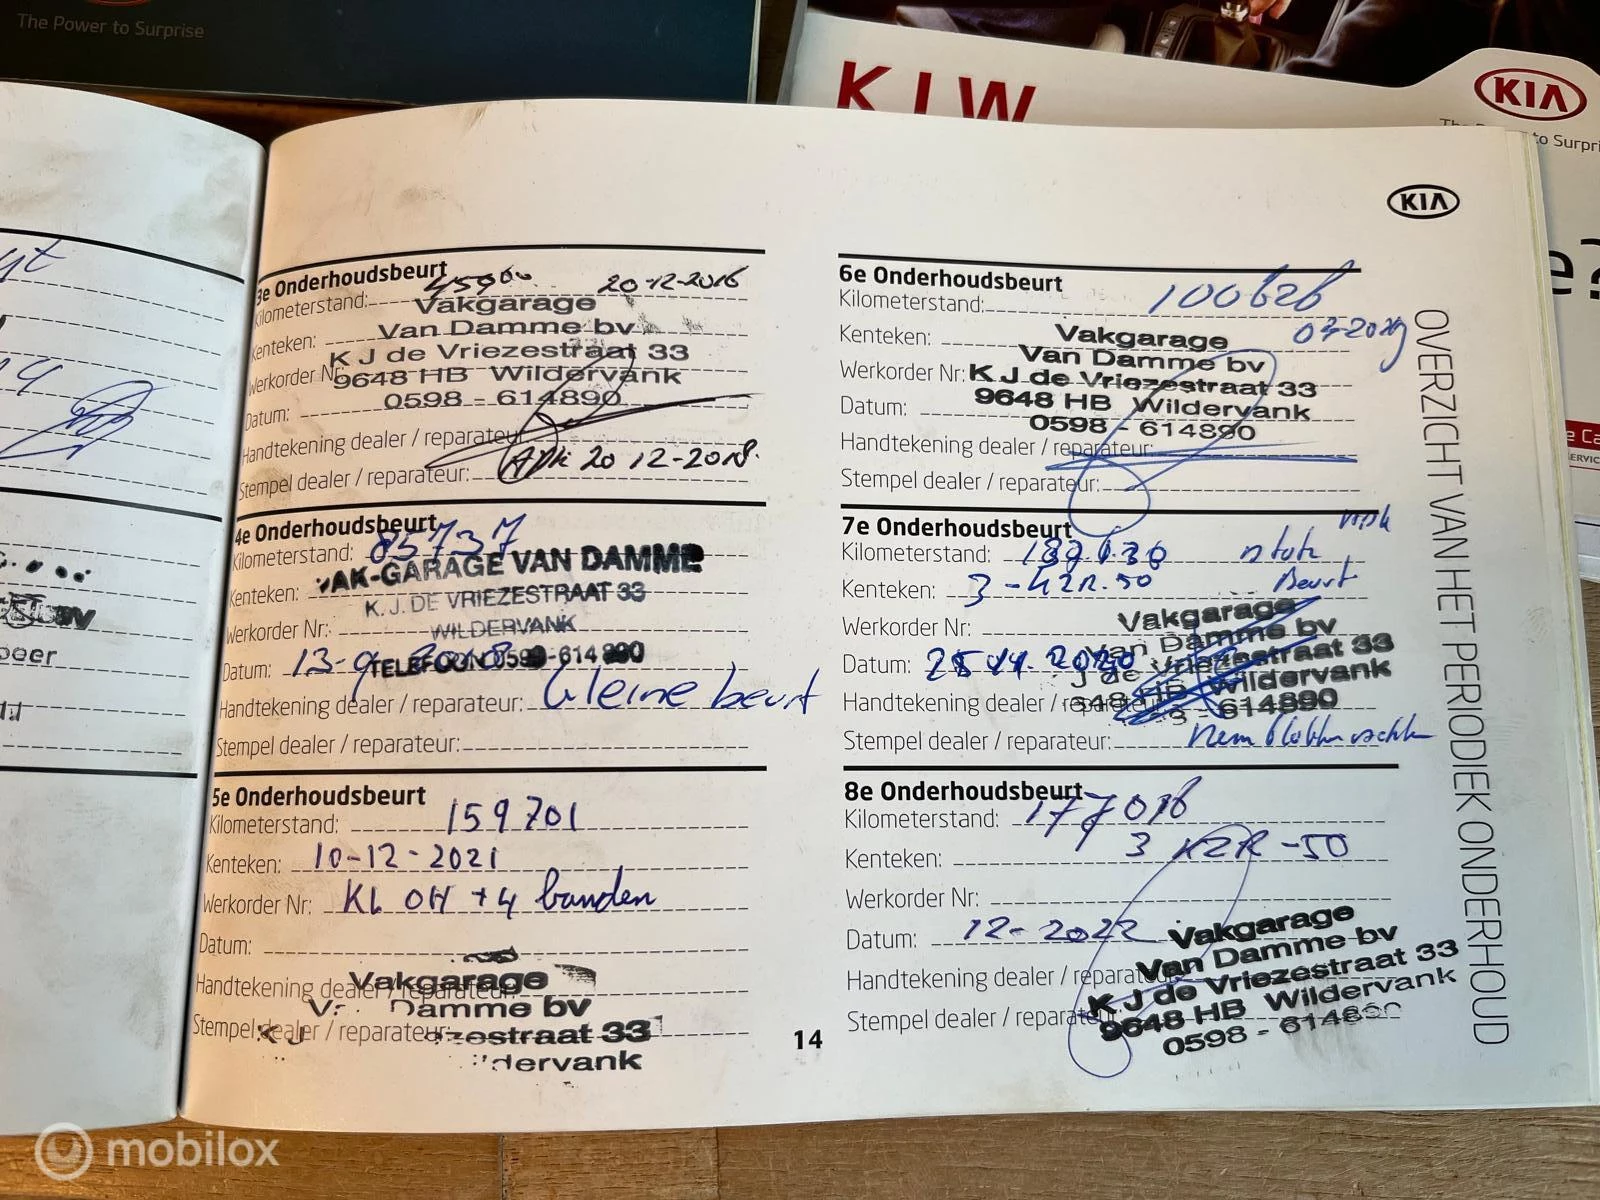 The Power to Surprise
KIA
to Surpri
e?
KIA
3e Onderhoudsbeurt
45900 20-12-2016
Kilometerstand:
Vakgarage
Van Damme bv
Kenteken:
K J de Vriezestraat 33
Werkorder Nr:
9648 HB Wildervank
0598 - 614890
Datum:
Handtekening dealer / reparateur:
20 12-2018.
Stempel dealer / reparateur:
4e Onderhoudsbeurt
Kilometerstand: 85737
VAK-GARAGE VAN DAMME
Kenteken:
K. J. DE VRIEZESTRAAT 33
Werkorder Nr:
WILDERVANK
Datum: 13-9-2018
TELEFOON 0598-614890
Handtekening dealer / reparateur: kleine beurt
Stempel dealer / reparateur:
5e Onderhoudsbeurt
Kilometerstand: 159701
Kenteken: 10-12-2021
Werkorder Nr: KL OH + 4 banden
Datum:
Handtekening dealer / reparateur:
Vakgarage
Damme bv
Stempel dealer / reparateur:
zestraat 33
dervank
14
6e Onderhoudsbeurt
Kilometerstand: 100626
03-2019
Kenteken:
Vakgarage
Van Damme bv
Werkorder Nr:
K J de Vriezestraat 33
9648 HB Wildervank
Datum:
0598 - 614890
Handtekening dealer / reparateur:
Stempel dealer / reparateur:
7e Onderhoudsbeurt
Kilometerstand:
Beurt
Kenteken: 3-KZR-50
Vakgarage
Werkorder Nr:
Van Damme bv
J de Vriezestraat 33
Datum:
2020
648 HB Wildervank
Handtekening dealer / reparateur:
- 614890
Stempel dealer / reparateur:
8e Onderhoudsbeurt
Kilometerstand: 177016
Kenteken: 3 KZR-50
Werkorder Nr:
Datum: 12-2022
Vakgarage
Van Damme bv
Handtekening dealer / reparateur:
K J de Vriezestraat 33
9648 HB Wildervank
Stempel dealer / reparateur:
0598 - 614890
OVERZICHT VAN HET PERIODIEK ONDERHOUD
mobilox